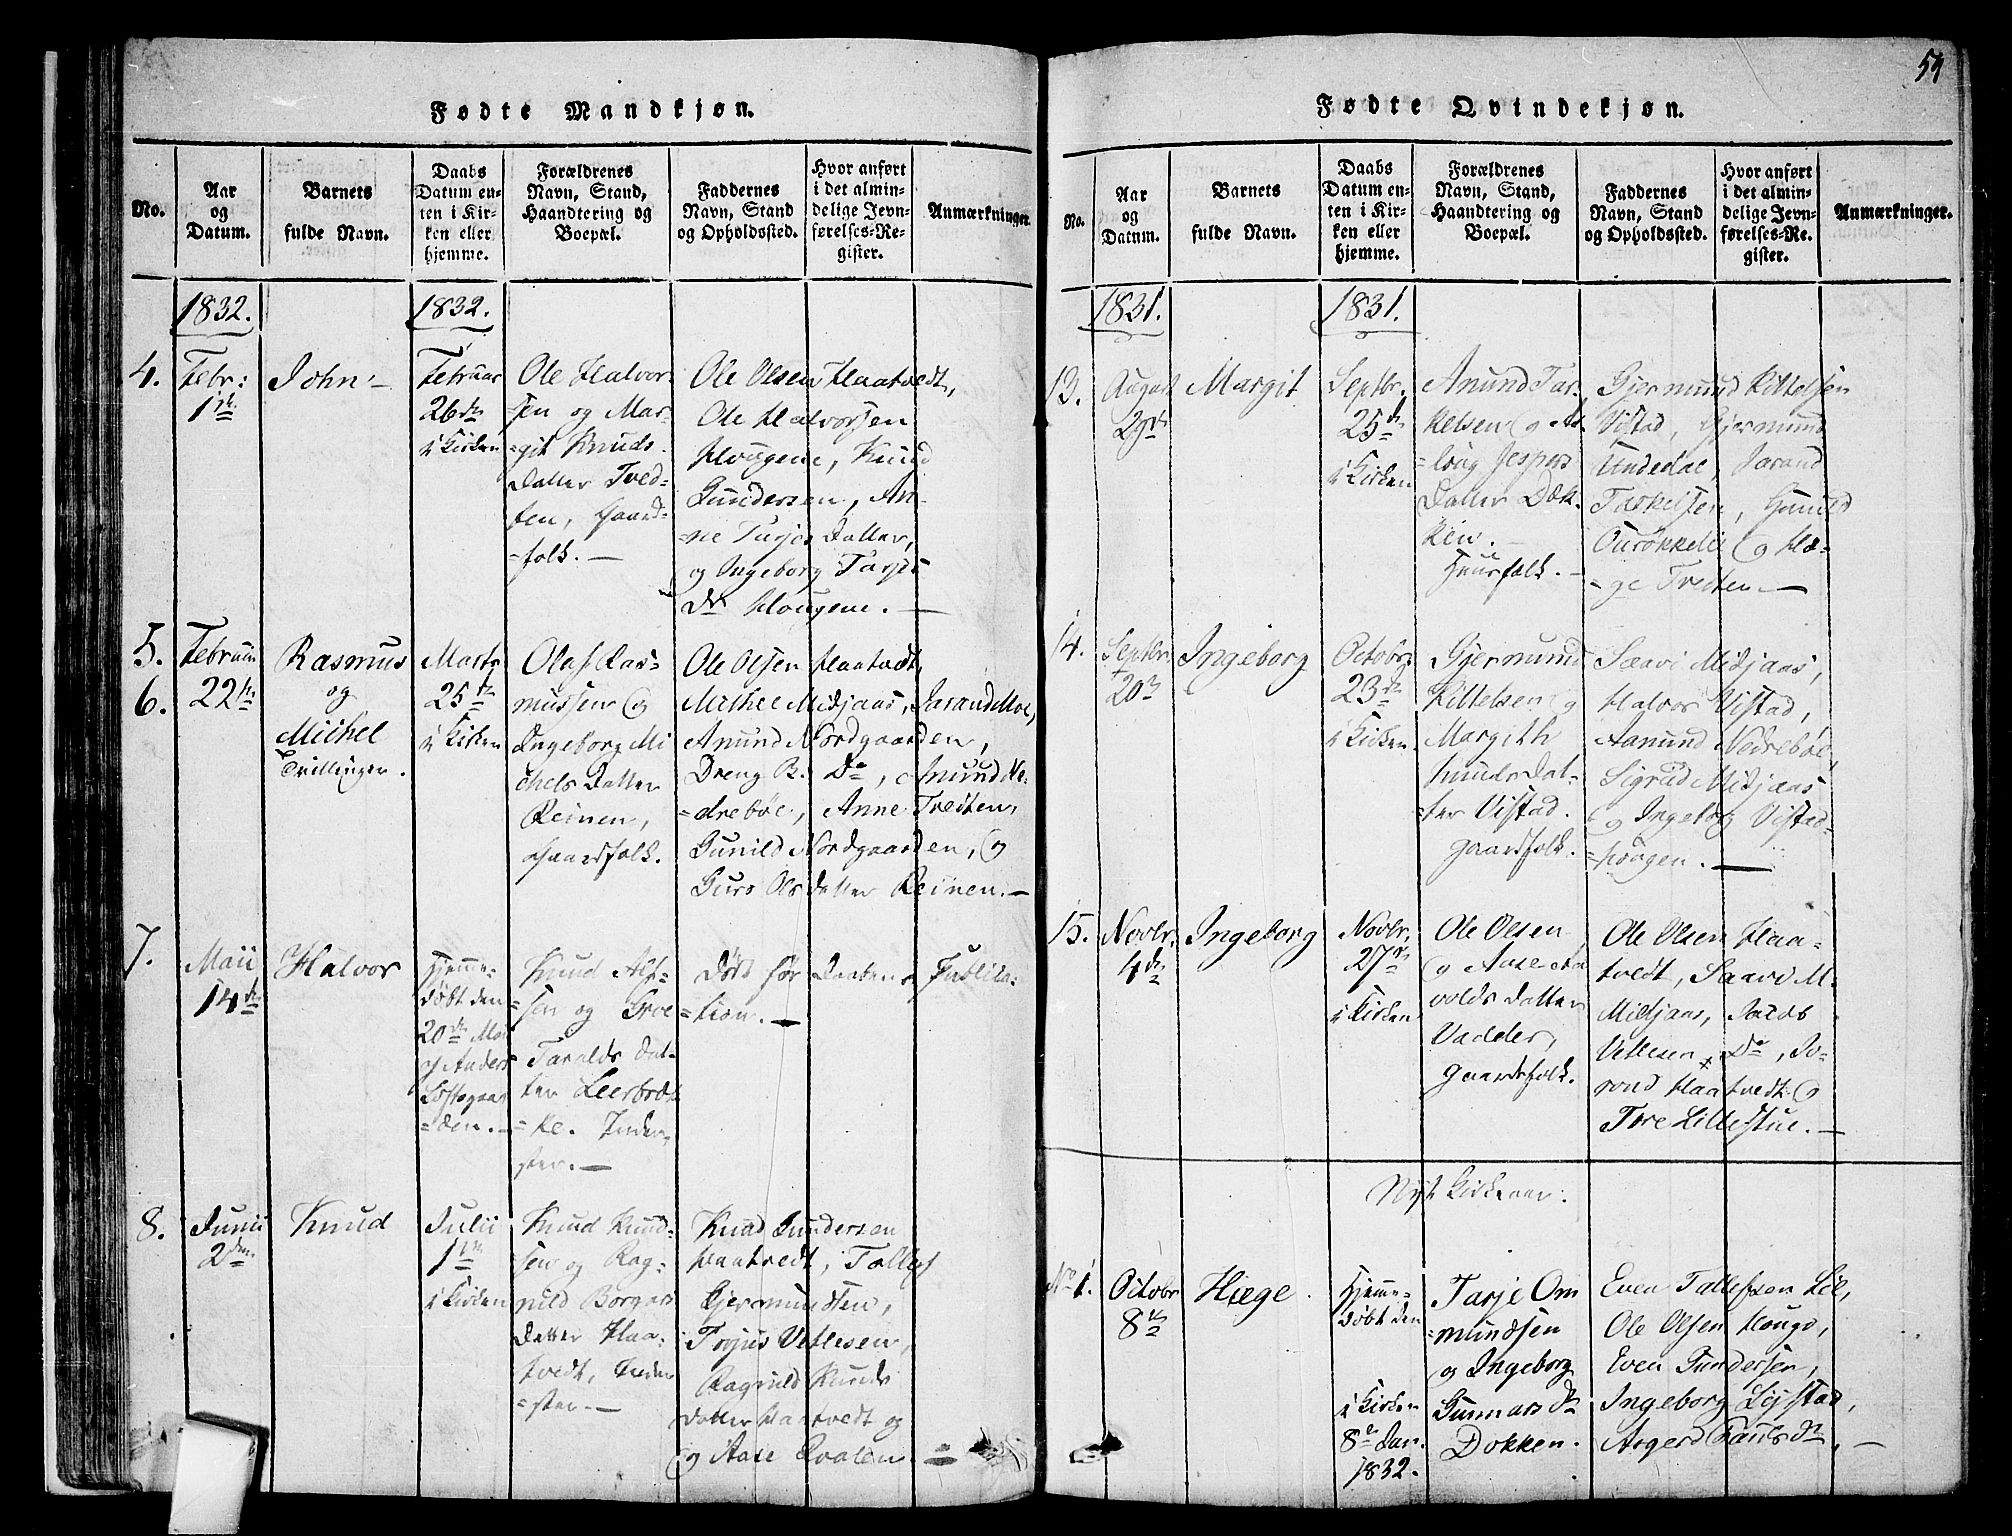 54
Fødte Mandkjøn.
No.
Aar
og
Datum.
Barnets
fulde Navn.
Daabs
Datum en-
ten i Kir-
ken eller
hjemme.
Forældrenes
Navn, Stand,
Haandtering og
Boepæl.
Faddernes
Navn, Stand
og Opholdssted.
Hvor anført
i det almin-
delige Jevn-
førelses-Re-
gister.
Anmærkninger.
1832.
1832.
4.
Febr:
1ste
John
Februar
26de
i Kirken
Ole Halvor-
sen og Mar-
git Knuds
Datter Tved-
ten, Gaard-
folk.
Ole Olsen Haatvedt,
Ole Halvorsen
Hougene, Knud
Gundersen, An-
ne Tarjes Datter,
og Ingeborg Tarjes
Dr Hougene.
5.
6.
Februar
22de
Rasmus
og
Michel
Tvillinger.
Marts
25de
i Kirken
Olaf Ras-
mussen og
Ingeborg Mi
chels Datter
Reinen,
Gaardfolk.
Ole Olsen Haatvedt,
Mikkel Midjaas, Jarand Moe,
Anund Nordgaarden,
Dreng B. Do, Anund Ne-
drebøe, Anne Tvedten,
Gunild Nordgaarden, og
Guro Olsdatter Reinen.
7.
Maii
14de
Halvor
Hjemme-
døbt den
20de Mai
af Anders
Loftsgaar
den.
Knud Alf-
sen og Groe
Taralds Dat-
ter Leerbræk-
ke. Inder-
ster.
Død før Daabens Publika-
tion.
8.
Junii
2den
Knud
Julii
1ste
i Kirken
Knud Knud-
sen og Rag-
nild Borgers
Datter Haa-
tvedt, Inder
ster.
Knud Gundersen
Haatvedt, Tollef
Gjermundsen,
Torjus Vetlesen,
Ragnild Knuds
datter Haatvedt og
og Aase Qvalen.
Fødte Qvindekjøn.
No.
Aar
og
Datum.
Barnets
fulde Navn.
Daabs
Datum en-
ten i Kir-
ken eller
hjemme.
Forældrenes
Navn, Stand,
Haandtering og
Boepæl.
Faddernes
Navn, Stand
og Opholdssted.
Hvor anført
i det almin-
delige Jevn-
førelses-Re-
gister.
Anmærkninger.
1831.
1831.
13.
August
29de
Margit
Septbr.
25de
i Kirken
Anund Tar-
kelsen og As
loug Jespers
Datter Dok-
ken.
Huusfolk.
Gjermund Kittelsen
Vistad, Gjermund
Undedal, Jarand
Taskelsen, Gunild
og Hæ-
ge Tvedten
14.
Septbr
20de
Ingeborg
Octobr.
23de
i Kirken
Gjermund
Kittelsen og
Margith
Knuds Dat-
ter Vistad.
Gaardfolk.
Saavi Midjaas,
Halvor Vistad,
Aanund Nedrebøe,
Sigrid Midjaas
og Ingeborg Vistad-
hougen.
15.
Novbr.
4de
Ingeborg
Novbr,
27de
i Kirken
Ole Olsen
og Aase
volds datter
Vadder,
Gaardsfolk.
Ole Olsen Haa-
tvedt, Saavi M.
Midjaas, Jacob
Vetlesen Do, Jo-
rond Haatvedt og
Tore Lillestue.
Nyt Kirkeaar.
No 1.
Octobr
8de
Hæge.
Hjemme-
døbt den
i Kirken
8de Jan.
1832.
Tarje Om
mundsen
og Ingeborg
Gunnars Dr
Dokken.
Even Tallefsen Lie,
Ole Olsen Houge,
Even Gundersen,
Ingeborg Lystad,
Asgerd Dr,